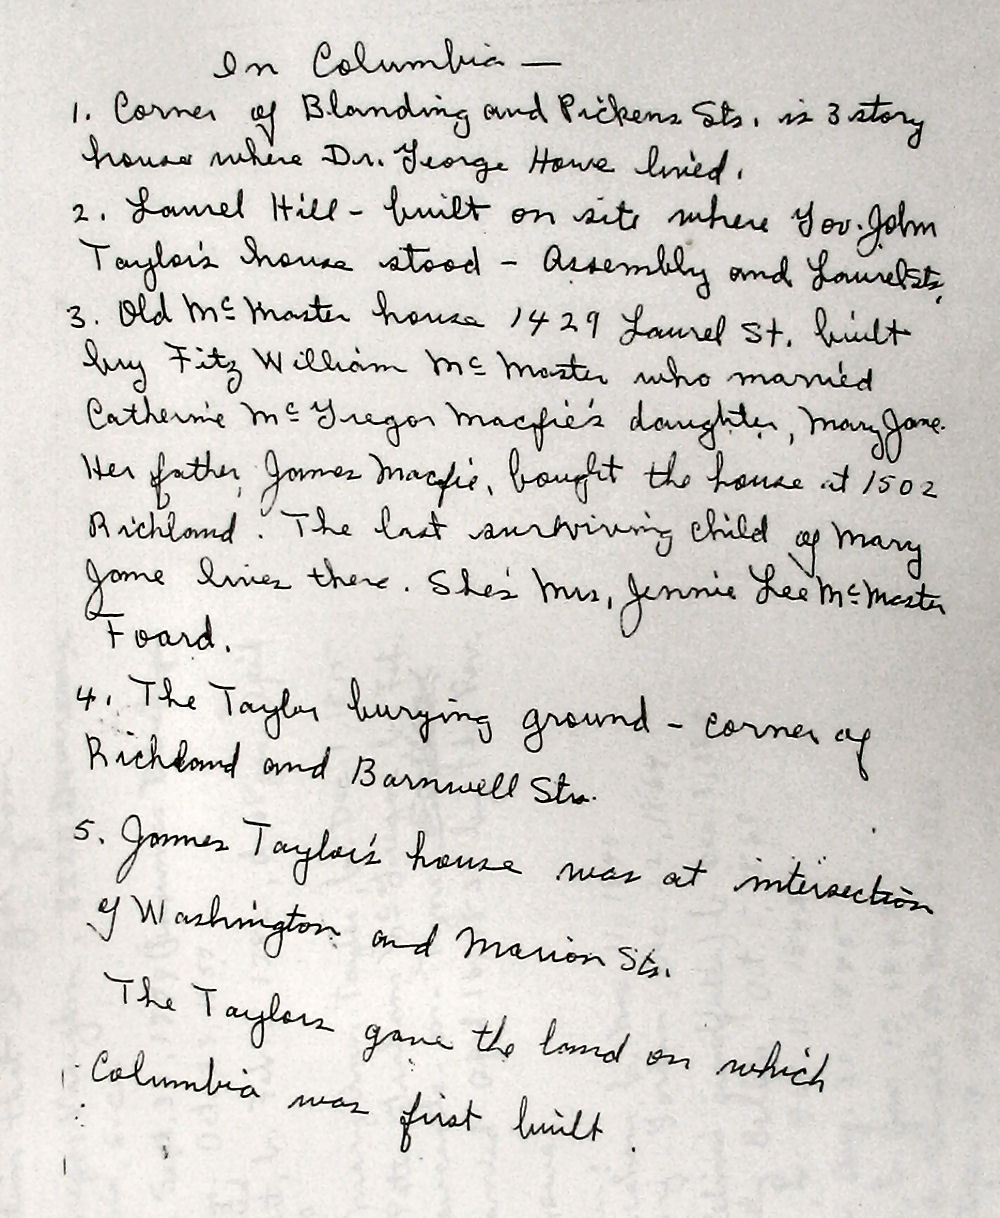 In Columbia —
1. Corner of Blanding and Pickens Sts. is 3 story
house where Dr. George Howe lived.
2. Laurel Hill - built on site where Gov. John
Taylor's house stood - Assembly and Laurel Sts.
3. Old McMaster house 1429 Laurel St. built
by Fitz William McMaster who married
Catherine McGregor Macfie's daughter, Mary Jane.
Her father, James Macfie, bought the house at 1502
Richland. The last surviving child of Mary
Jane lives there. She's Mrs. Jennie Lee McMaster
Foard.
4. The Taylor burying ground - corner of
Richland and Barnwell Sts.
5. James Taylor's house was at intersection
of Washington and Marion Sts.
The Taylors gave the land on which
Columbia was first built.